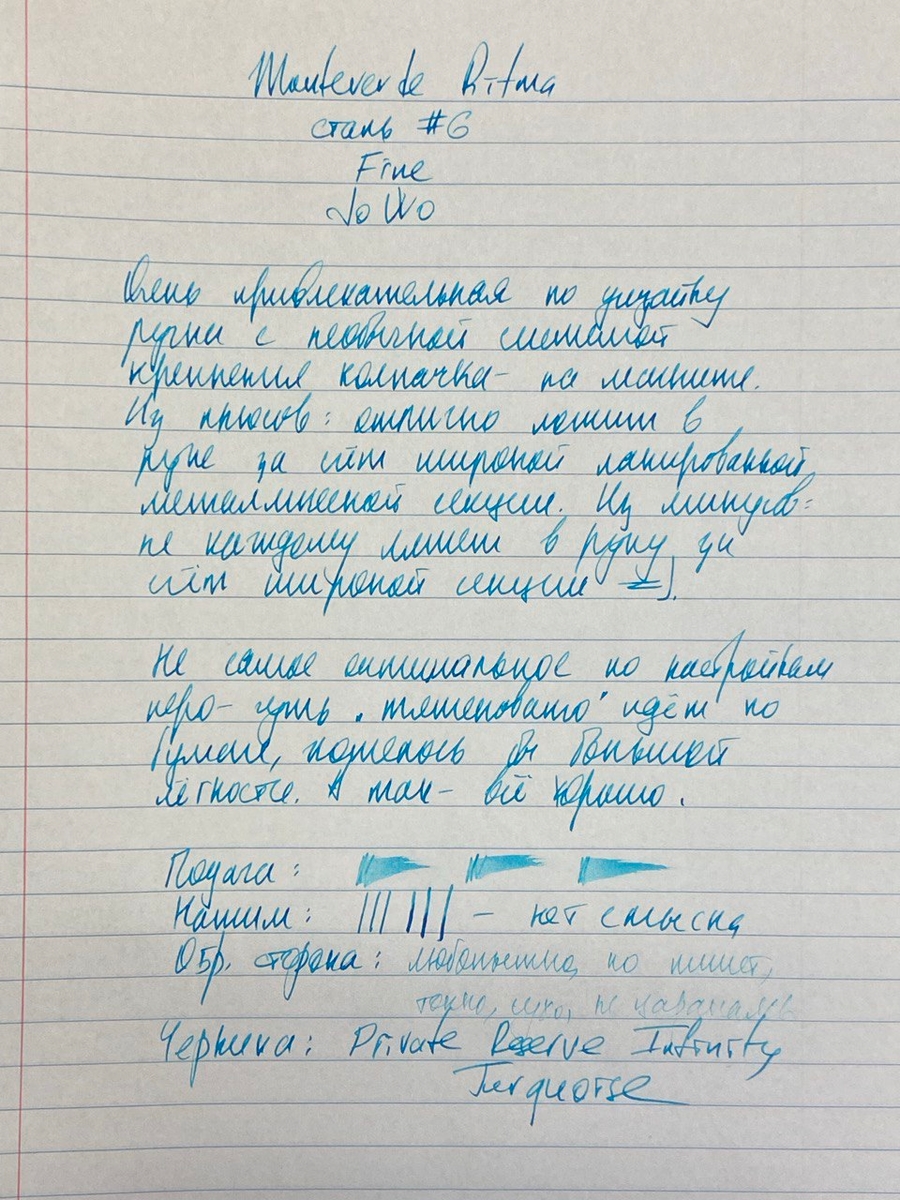 Monteverde Ritma
сталь #6
Fine
JoWo
Очень привлекательная по дизайну
ручка с необычной системой
крепления колпачка - на магните.
Из плюсов: отлично лежит в
руке за счёт широкой лакированной
металлической секции. Из минусов:
не каждому ляжет в руку за
счёт широкой секции =).
Не самое оптимальное по настройкам
перо - чуть "тяжеловато" идёт по
бумаге, хотелось бы большей
лёгкости. А так - всё хорошо.
Подача:
Нажим: - нет смысла
Обр. сторона: любопытно, но пишет,
тонко, сухо, не царапаясь
Чернила: Private Reserve Infinity
Turquoise